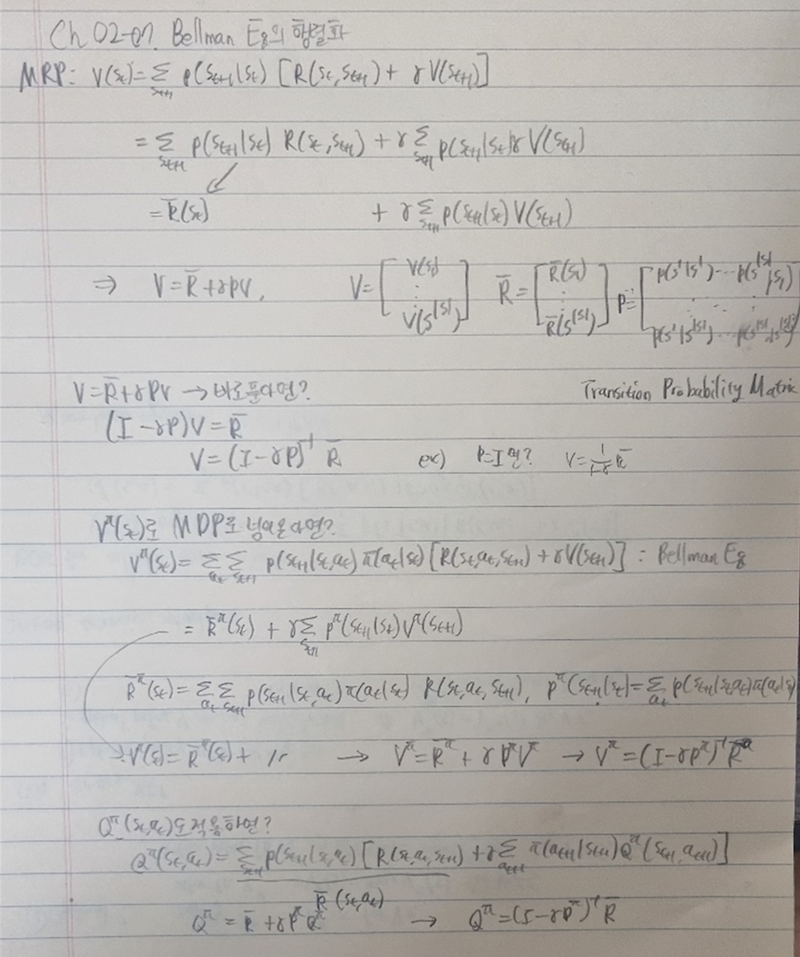 Ch 02-07. Bellman Eq의 행렬화
MRP: V(s_t) = Σ_{s_{t+1}} p(s_{t+1}|s_t) [R(s_t, s_{t+1}) + γV(s_{t+1})]
= Σ_{s_{t+1}} p(s_{t+1}|s_t) R(s_t, s_{t+1}) + γ Σ_{s_{t+1}} p(s_{t+1}|s_t)γ V(s_{t+1})
= R̄(s_t) + γ Σ_{s_{t+1}} p(s_{t+1}|s_t) V(s_{t+1})
⇒ V = R̄ + γPV, V = [V(s¹) ⋮ V(s^{|S|})] R̄ = [R̄(s¹) ⋮ R̄(s^{|S|})] P = [p(s¹|s¹) ⋯ p(s^{|S|}|s¹) ⋮ ⋱ ⋮ p(s¹|s^{|S|}) ⋯ p(s^{|S|}|s^{|S|})]
V = R̄ + γPV → 바로 푼다면? Transition Probability Matrix
(I - γP)V = R̄
V = (I - γP)⁻¹ R̄ ex) P=I 면? V = 1/(1-γ) R̄
V^π(s_t)로 MDP로 넘어온다면?
V^π(s_t) = Σ_{a_t} Σ_{s_{t+1}} p(s_{t+1}|s_t, a_t) π(a_t|s_t) [R(s_t, a_t, s_{t+1}) + γV(s_{t+1})] : Bellman Eq
= R̄^π(s_t) + γ Σ_{s_{t+1}} p^π(s_{t+1}|s_t) V^π(s_{t+1})
R̄^π(s_t) = Σ_{a_t} Σ_{s_{t+1}} p(s_{t+1}|s_t, a_t) π(a_t|s_t) R(s_t, a_t, s_{t+1}), p^π(s_{t+1}|s_t) = Σ_{a_t} p(s_{t+1}|s_t a_t) π(a_t|s_t)
V^π(s_t) = R̄^π(s_t) + 〃 → V^π = R̄^π + γP^πV^π → V^π = (I - γP^π)⁻¹ R̄^π
Q^π(s_t, a_t)도 적용하면?
Q^π(s_t, a_t) = Σ_{s_{t+1}} p(s_{t+1}|s_t, a_t) [R(s_t, a_t, s_{t+1}) + γ Σ_{a_{t+1}} π(a_{t+1}|s_{t+1}) Q^π(s_{t+1}, a_{t+1})]
R̄(s_t, a_t)
Q^π = R̄ + γP^πQ^π → Q^π = (I - γP^π)⁻¹ R̄